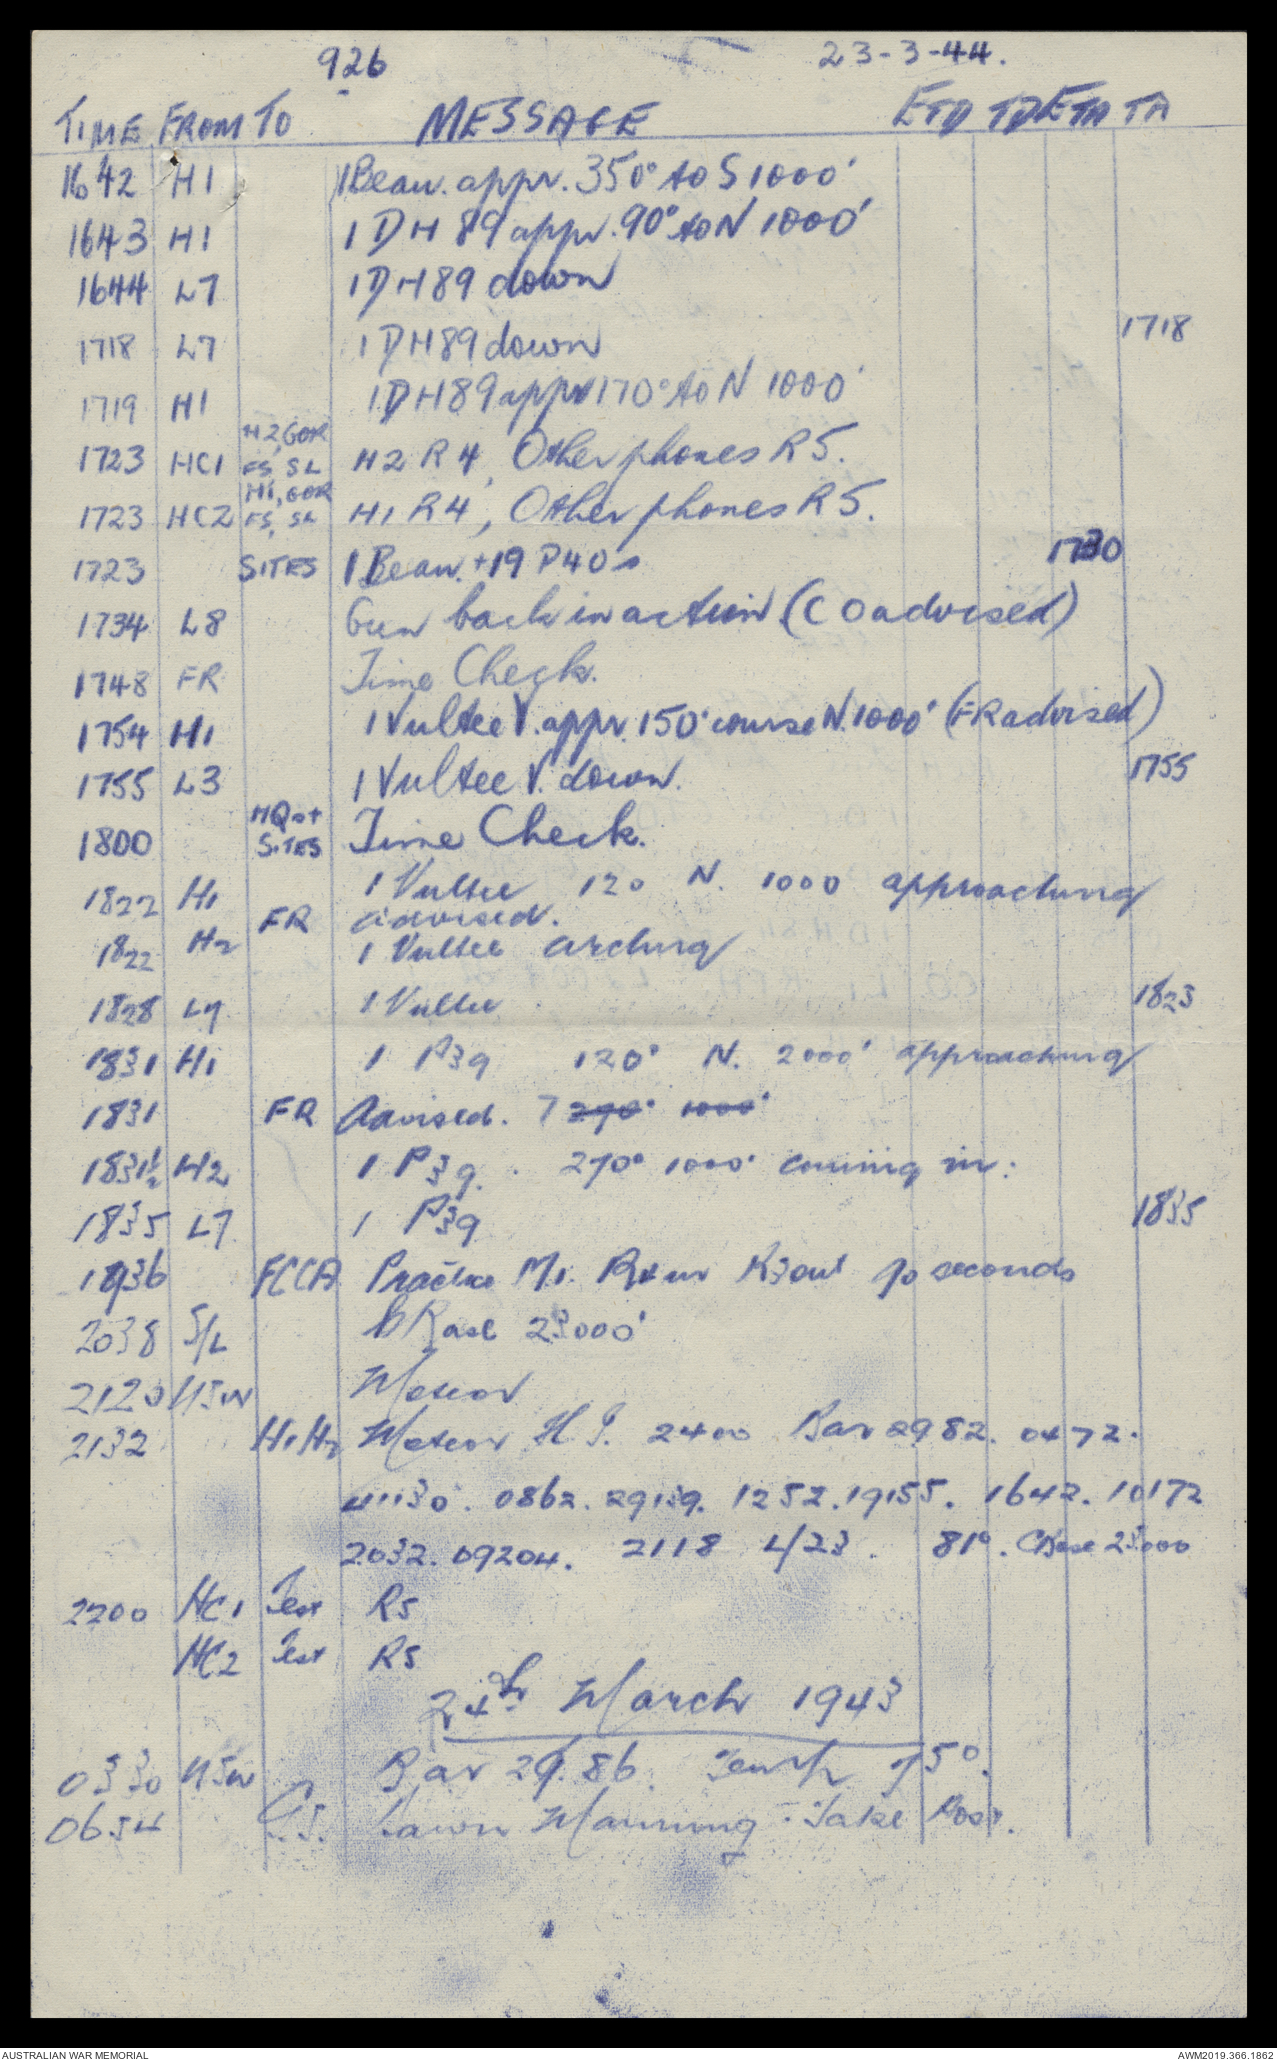 926 23-3-44.
TIME FROM TO MESSAGE ETD TD ETA TA
1642 H1 1 Beau. appr. 350° to S 1000'
1643 H1 1 DH 89 appr. 90° to N 1000'
1644 L7 1 DH89 down
1718 L7 1 DH89 down 1718
1719 H1 1 DH89 appr 170° to N 1000'
H2, GOR
1723 HC1 FS, SL H2 R4, Other phones R5.
H1, GOR
1723 HC2 FS, SL H1 R4, Other phones R5.
1723 SITES 1 Beau. + 19 P40s 1730
1734 L8 Gun back in action (CO advised)
1748 FR Time Check.
1754 H1 1 Vultee V. appr. 150° course N. 1000' (FR advised)
1755 L3 1 Vultee V. down. 1755
HQ ot
1800 SITES Time Check.
1822 H1 1 Vultee 120 N. 1000 approaching
FR advised.
1822 H2 1 Vultee circling
1828 L7 1 Vultee 1823
1831 H1 1 P39 120° N. 2000' approaching
1831 FR Advised. 7 270° 1000'
1831½ H2 1 P39. 270° 1000' coming in.
1835 L7 1 P39 1835
1936 FCCA Practice M.1. R4 in R3 out 90 seconds
2038 S/L Base 23000'
2120 Meteor
2132 H1 H2 Meteor 2400 Bar 2982. 0472.
41130. 0862. 29139. 1252. 19155. 1642. 10172
2032. 09204. 2118 4/23. 81°. CBase 23000
2200 HC1 Test R5
HC2 Test R5
24th March 1943
0330 Bar 29.86. Temp 75°.
0654 Dawn Manning - Take Post.
AUSTRALIAN WAR MEMORIAL AWM2019.366.1862